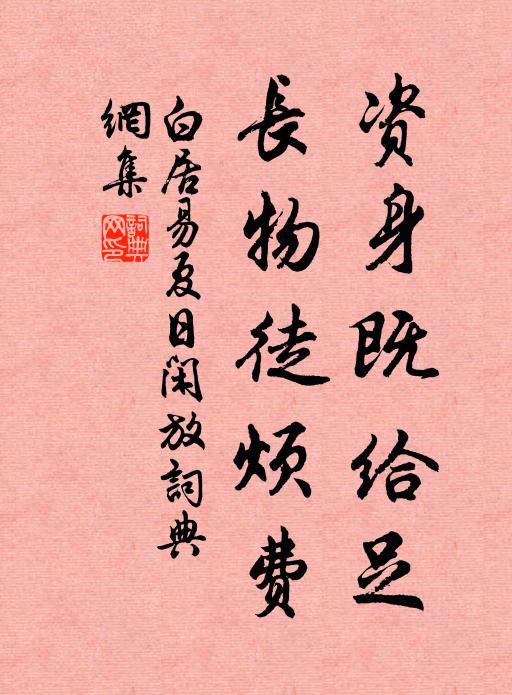 资身既给足
長物徒烦费
白居易夏日闲放詞典
網集
詞典網印